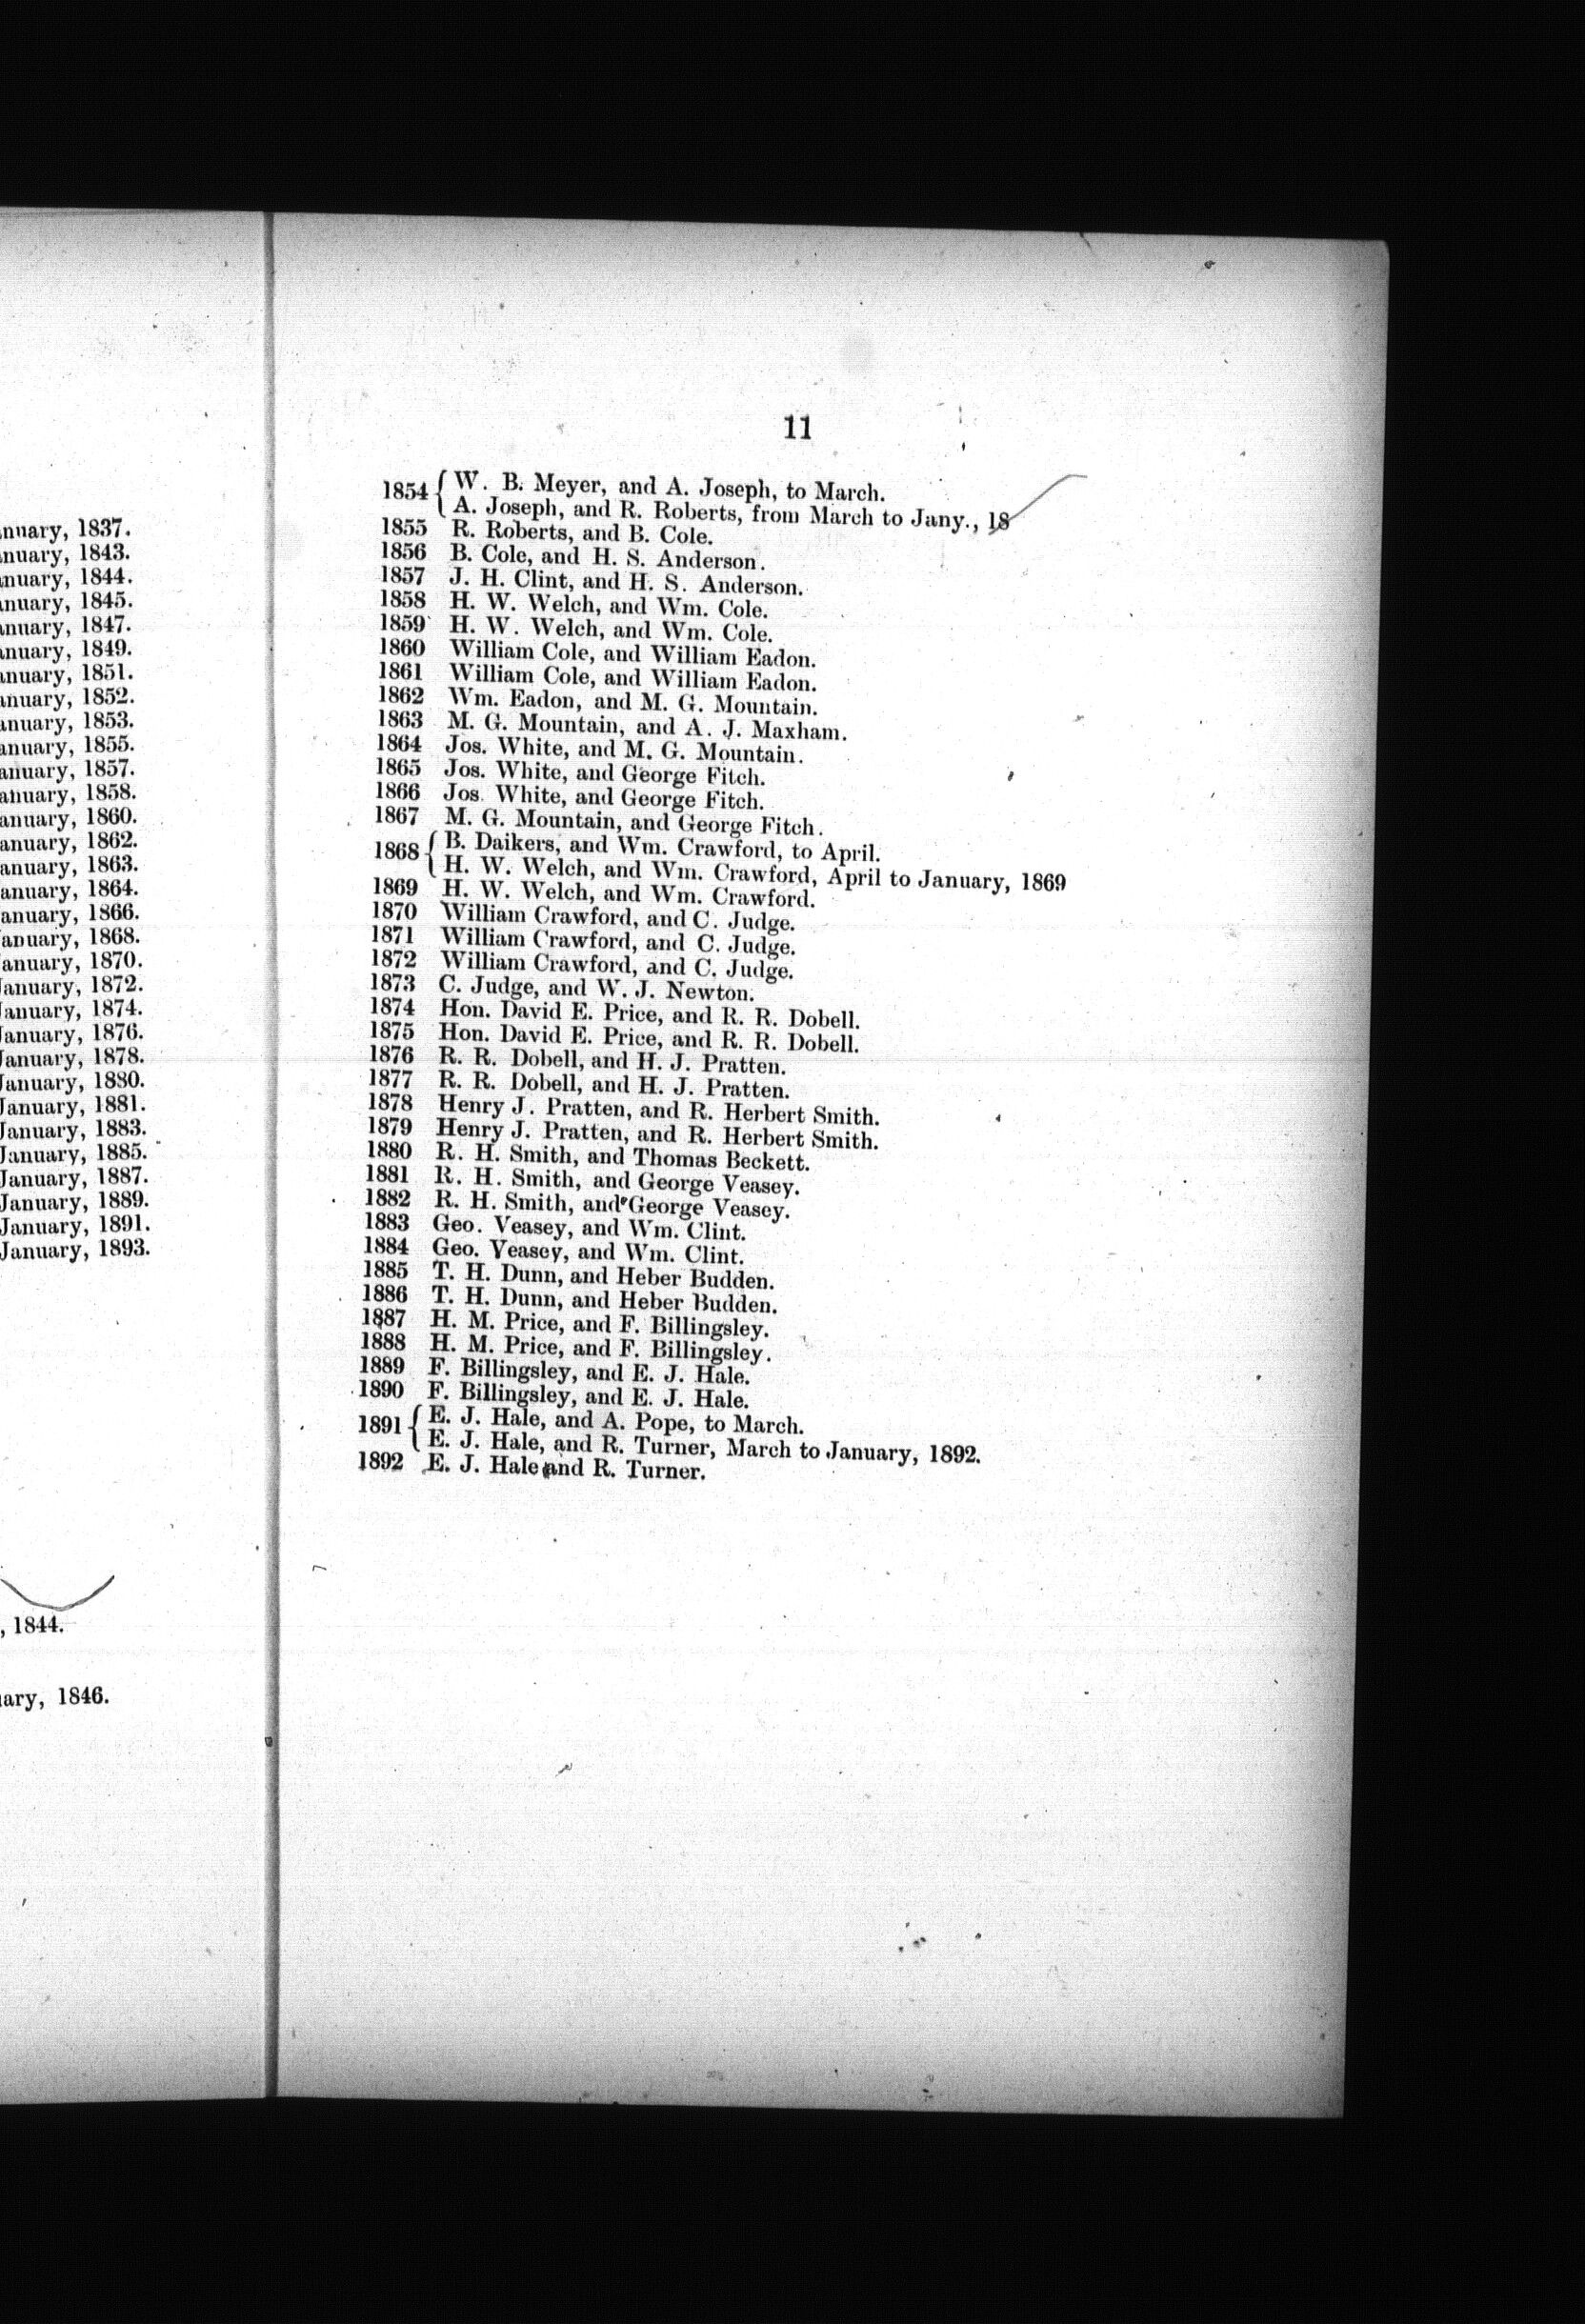 nuary, 1837.
nuary, 1843.
nuary, 1844.
nuary, 1845.
nuary, 1847.
anuary, 1849.
anuary, 1851.
anuary, 1852.
anuary, 1853.
anuary, 1855.
anuary, 1857.
anuary, 1858.
anuary, 1860.
anuary, 1862.
anuary, 1863.
anuary, 1864.
anuary, 1866.
anuary, 1868.
anuary, 1870.
January, 1872.
January, 1874.
January, 1876.
January, 1878.
January, 1880.
January, 1881.
January, 1883.
January, 1885.
January, 1887.
January, 1889.
January, 1891.
January, 1893.
, 1844.
ary, 1846.
11
1854 { W. B. Meyer, and A. Joseph, to March.
A. Joseph, and R. Roberts, from March to Jany., 18
1855 R. Roberts, and B. Cole.
1856 B. Cole, and H. S. Anderson.
1857 J. H. Clint, and H. S. Anderson.
1858 H. W. Welch, and Wm. Cole.
1859 H. W. Welch, and Wm. Cole.
1860 William Cole, and William Eadon.
1861 William Cole, and William Eadon.
1862 Wm. Eadon, and M. G. Mountain.
1863 M. G. Mountain, and A. J. Maxham.
1864 Jos. White, and M. G. Mountain.
1865 Jos. White, and George Fitch.
1866 Jos. White, and George Fitch.
1867 M. G. Mountain, and George Fitch.
1868 { B. Daikers, and Wm. Crawford, to April.
H. W. Welch, and Wm. Crawford, April to January, 1869
1869 H. W. Welch, and Wm. Crawford.
1870 William Crawford, and C. Judge.
1871 William Crawford, and C. Judge.
1872 William Crawford, and C. Judge.
1873 C. Judge, and W. J. Newton.
1874 Hon. David E. Price, and R. R. Dobell.
1875 Hon. David E. Price, and R. R. Dobell.
1876 R. R. Dobell, and H. J. Pratten.
1877 R. R. Dobell, and H. J. Pratten.
1878 Henry J. Pratten, and R. Herbert Smith.
1879 Henry J. Pratten, and R. Herbert Smith.
1880 R. H. Smith, and Thomas Beckett.
1881 R. H. Smith, and George Veasey.
1882 R. H. Smith, and George Veasey.
1883 Geo. Veasey, and Wm. Clint.
1884 Geo. Veasey, and Wm. Clint.
1885 T. H. Dunn, and Heber Budden.
1886 T. H. Dunn, and Heber Budden.
1887 H. M. Price, and F. Billingsley.
1888 H. M. Price, and F. Billingsley.
1889 F. Billingsley, and E. J. Hale.
1890 F. Billingsley, and E. J. Hale.
1891 { E. J. Hale, and A. Pope, to March.
E. J. Hale, and R. Turner, March to January, 1892.
1892 E. J. Hale and R. Turner.